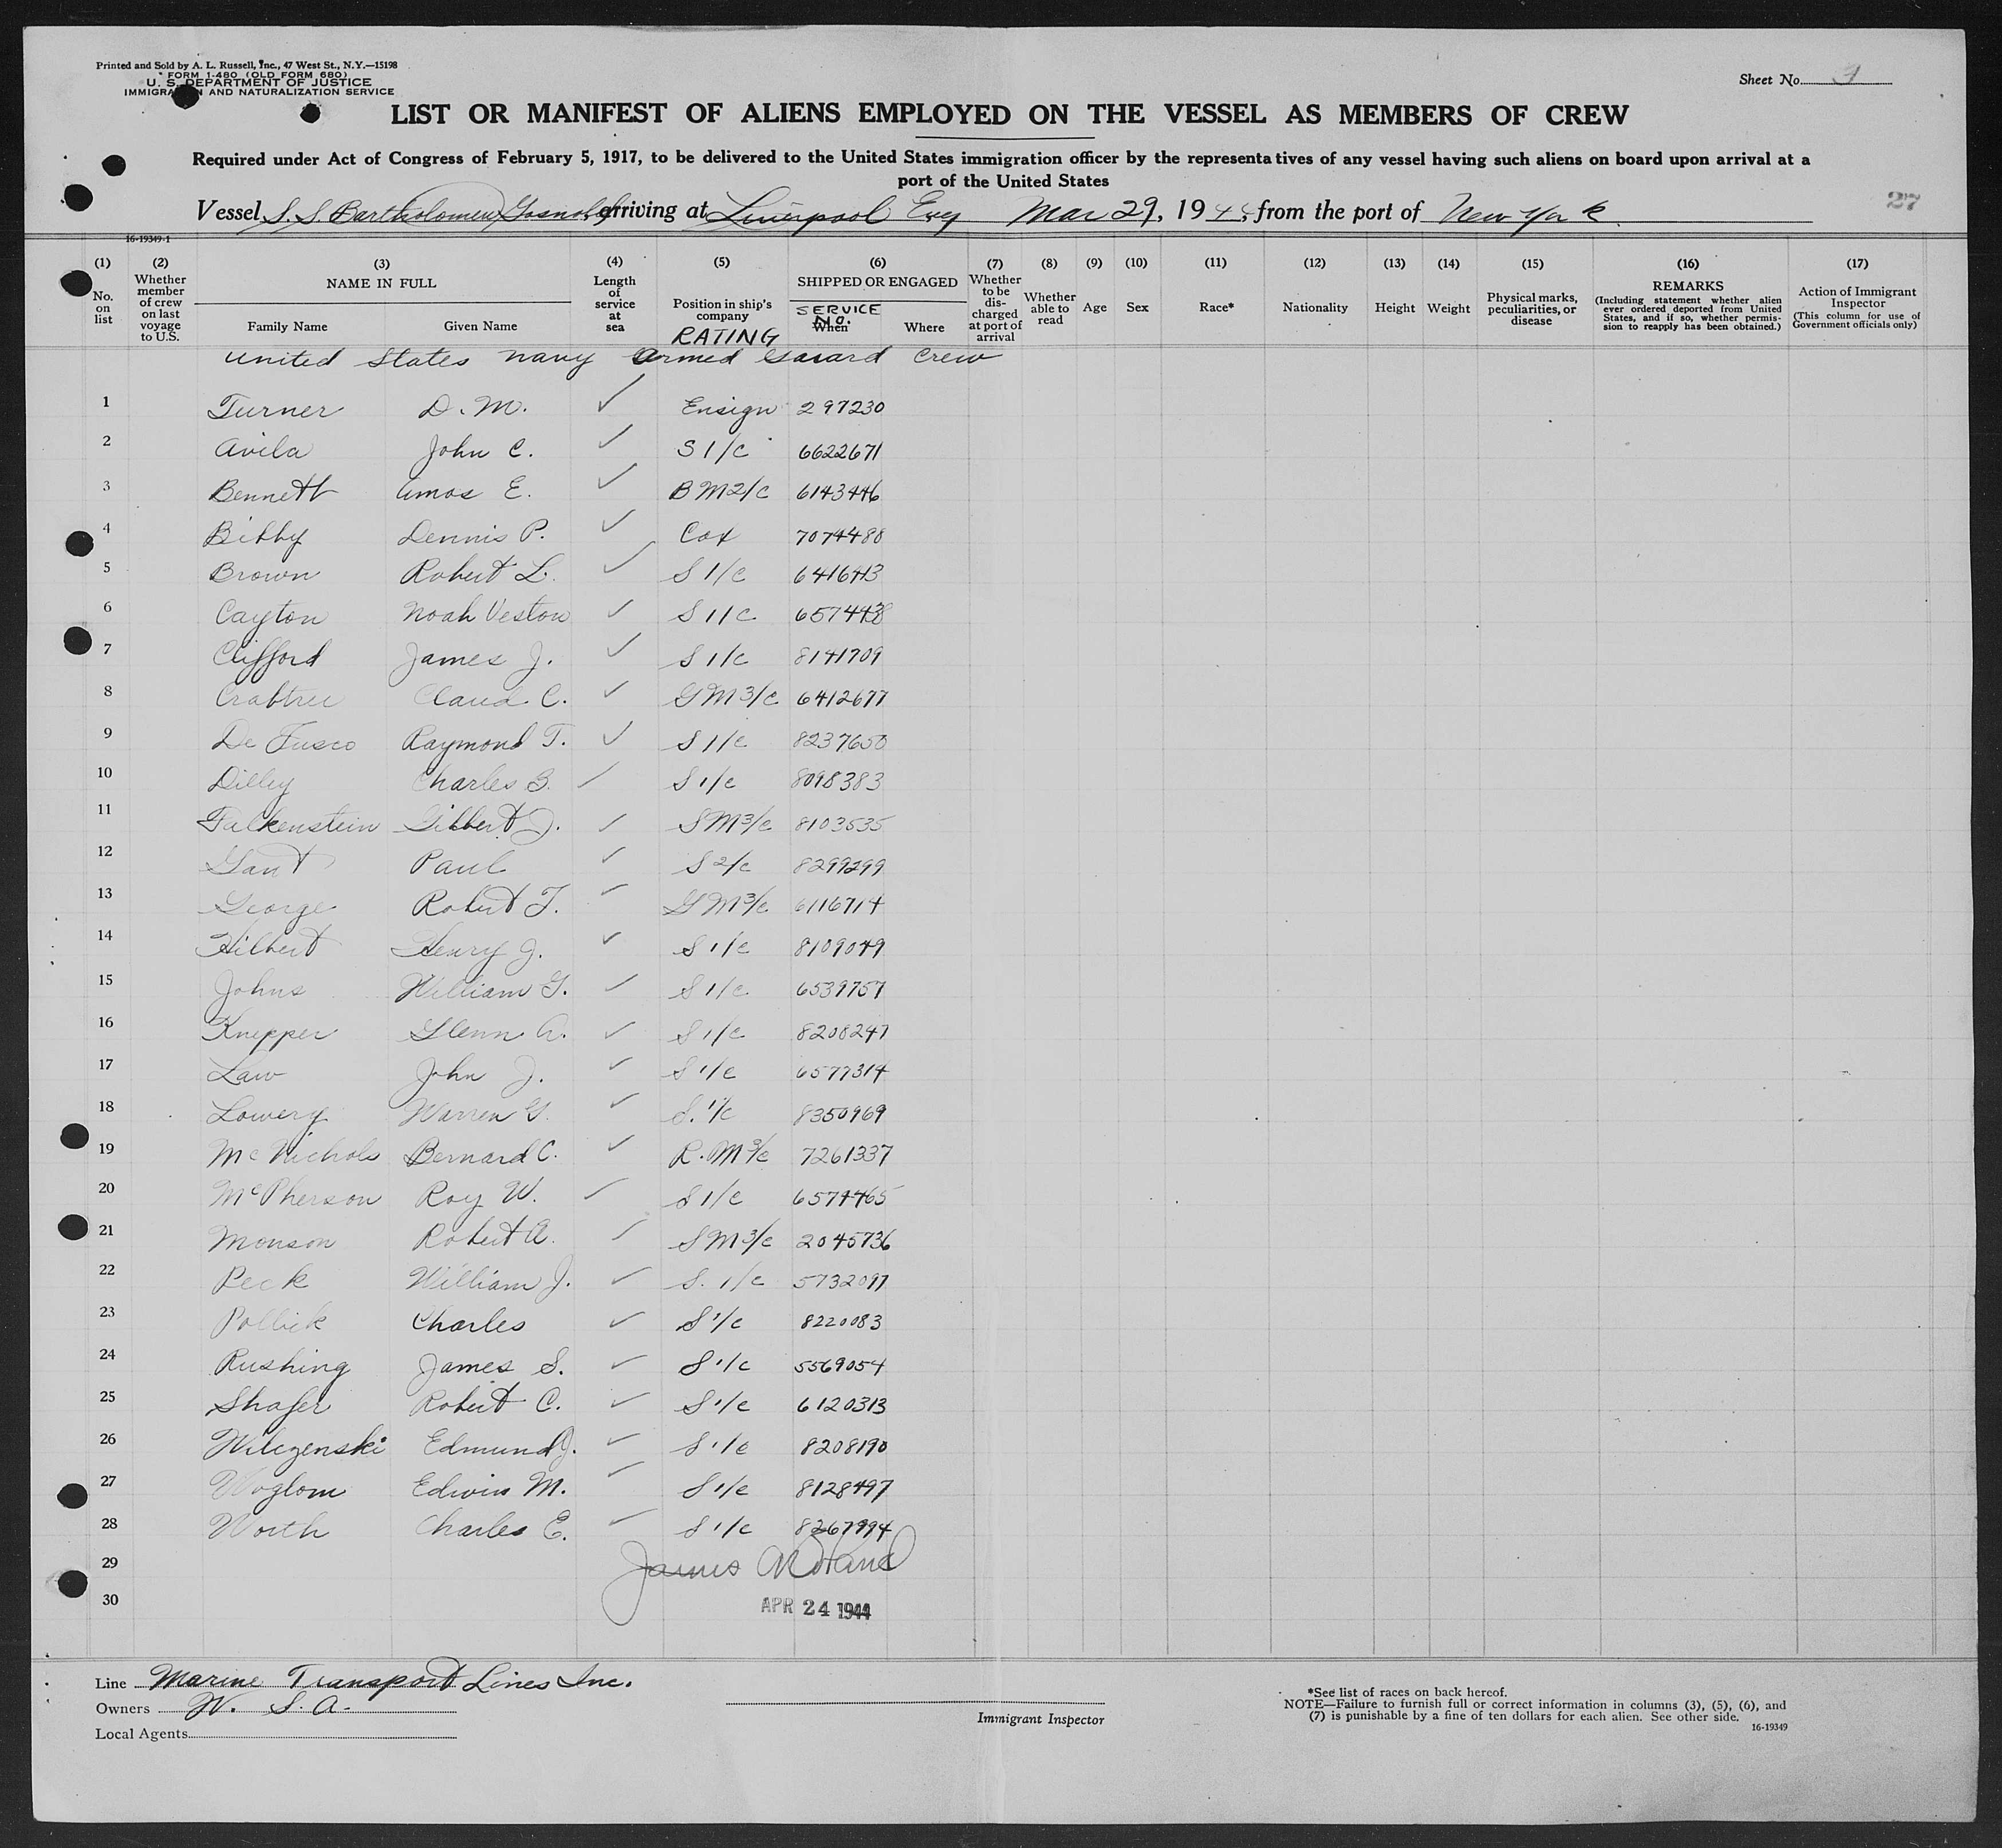 Printed and Sold by A. L. Russell, Inc., 47 West St., N.Y.—15198
FORM I-480 (OLD FORM 680)
U. S. DEPARTMENT OF JUSTICE
IMMIGRATION AND NATURALIZATION SERVICE
Sheet No.
LIST OR MANIFEST OF ALIENS EMPLOYED ON THE VESSEL AS MEMBERS OF CREW
Required under Act of Congress of February 5, 1917, to be delivered to the United States immigration officer by the representatives of any vessel having such aliens on board upon arrival at a
port of the United States
Vessel S. S. Bartholomew Gosnold arriving at Liverpool Eng Mar 29, 1944, from the port of New York
27
16-19349-1
(1) No. on list
(2) Whether member of crew on last voyage to U.S.
(3) NAME IN FULL Family Name Given Name
(4) Length of service at sea
(5) Position in ship's company RATING
(6) SHIPPED OR ENGAGED SERVICE NO. When Where
(7) Whether to be discharged at port of arrival
(8) Whether able to read
(9) Age
(10) Sex
(11) Race*
(12) Nationality
(13) Height
(14) Weight
(15) Physical marks, peculiarities, or disease
(16) REMARKS (Including statement whether alien ever ordered deported from United States, and if so, whether permission to reapply has been obtained.)
(17) Action of Immigrant Inspector (This column for use of Government officials only)
United States Navy Armed Guard Crew
1 Turner D. M. ✓ Ensign 297230
2 Avila John C. ✓ S 1/c 6622671
3 Bennett Amos E. ✓ B M2/c 6143446
4 Bibby Dennis P. ✓ Cox 7074480
5 Brown Robert L. ✓ S 1/c 6416413
6 Cayton Noah Veston ✓ S 1/c 6574438
7 Clifford James J. ✓ S 1/c 8141709
8 Crabtree Claud C. ✓ G M 3/c 6412677
9 De Fusco Raymond T. ✓ S 1/c 8237650
10 Dilley Charles B. ✓ S 1/c 8098383
11 Falkenstein Gilbert J. ✓ S M3/c 8103535
12 Gant Paul ✓ S 2/c 8299299
13 George Robert F. ✓ G M3/c 6116714
14 Hilbert Henry J. ✓ S 1/c 8109049
15 Johns William G. ✓ S 1/c 6539757
16 Knepper Glenn A. ✓ S 1/c 8208247
17 Law John J. ✓ S 1/c 6577314
18 Lowery Warren G. ✓ S. 1/c 8350969
19 McNichols Bernard C. ✓ R. M 3/c 7261337
20 McPherson Roy W. ✓ S 1/c 6574465
21 Monson Robert A. ✓ S M 3/c 2045736
22 Peck William J. ✓ S. 1/c 5732097
23 Pollick Charles ✓ S 1/c 8220083
24 Rushing James S. ✓ S 1/c 5569054
25 Shafer Robert C. ✓ S 1/c 6120313
26 Wilczenski Edmund J. ✓ S 1/c 8208190
27 Woglom Edwin M. ✓ S 1/c 8128497
28 Worth Charles E. ✓ S 1/c 8267994
29 James
30
APR 24 1944
Line Marine Transport Lines Inc.
Owners W. S. A.
Local Agents
Immigrant Inspector
*See list of races on back hereof.
NOTE—Failure to furnish full or correct information in columns (3), (5), (6), and
(7) is punishable by a fine of ten dollars for each alien. See other side.
16-19349